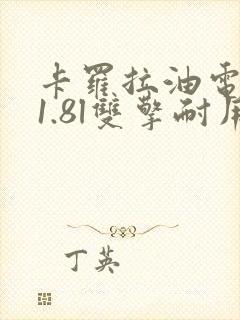 卡羅拉油電
1.8l雙擎耐用
丁英